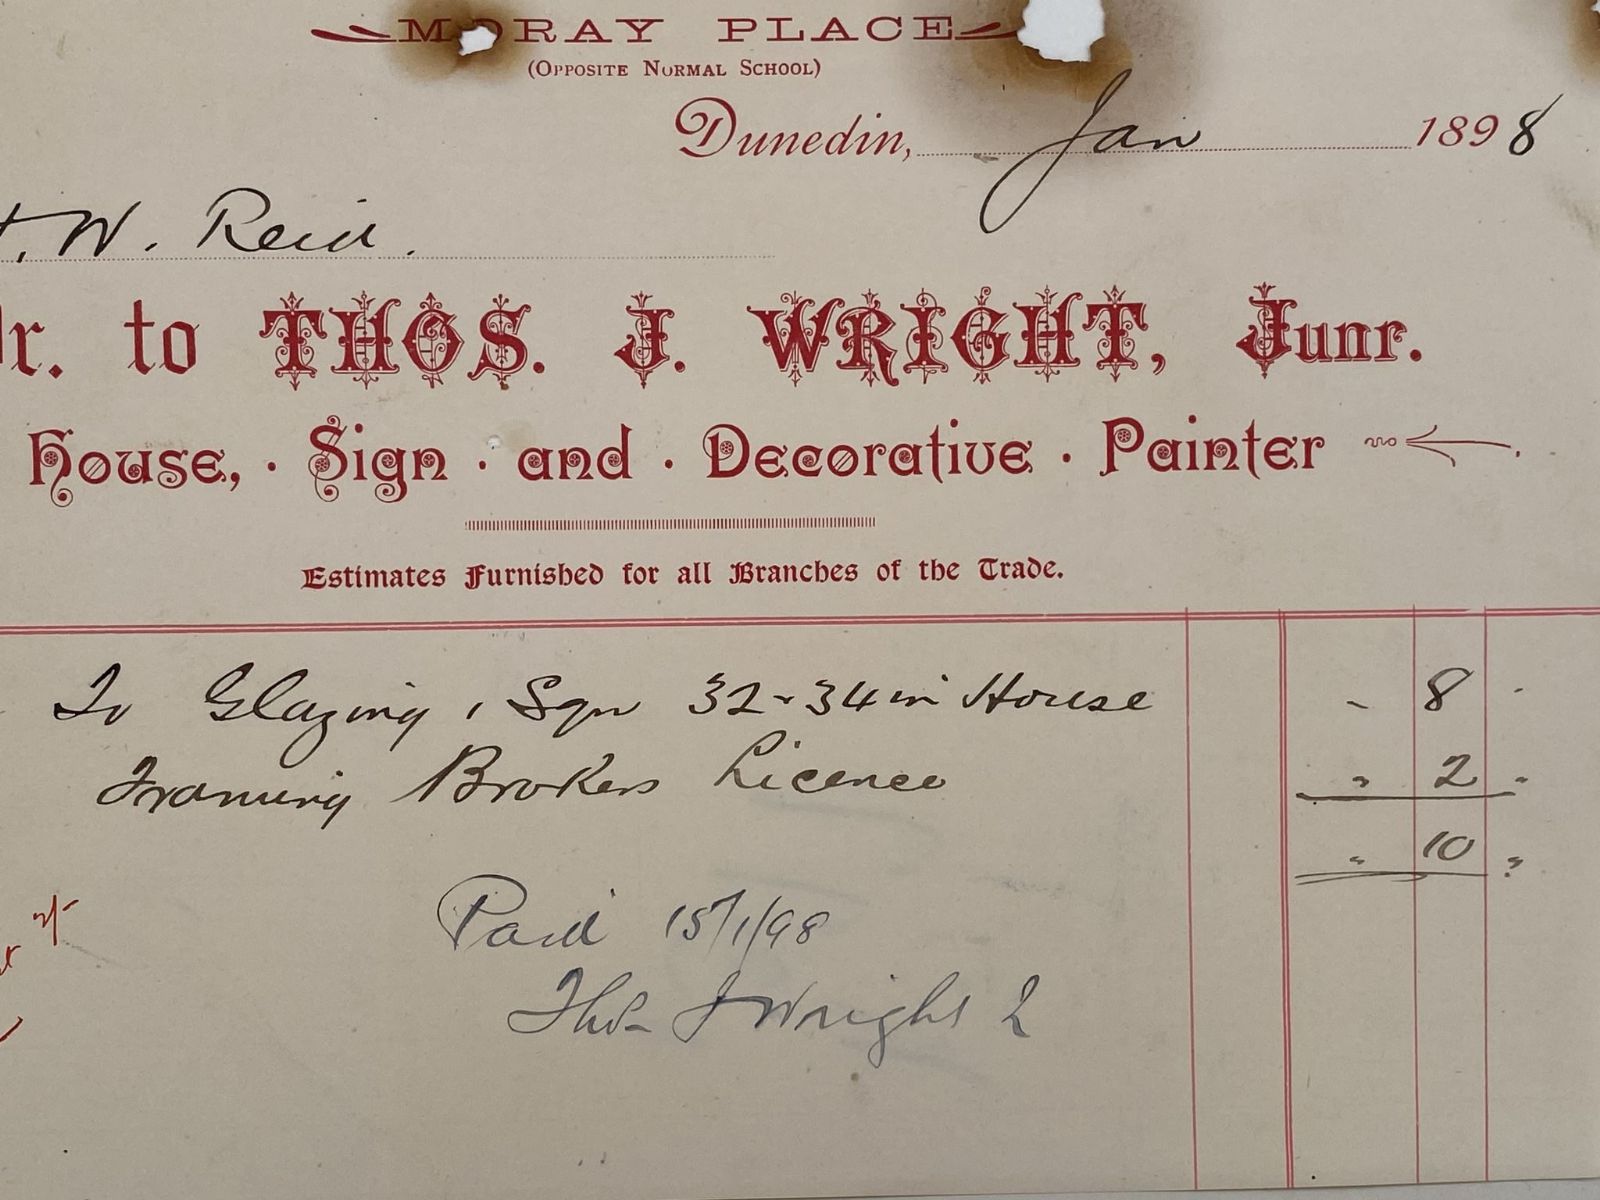 MORAY PLACE
(OPPOSITE NORMAL SCHOOL)
Dunedin, Jan 1898
W. Reid.
Dr. to THOS. J. WRIGHT, Junr.
House, · Sign · and · Decorative · Painter
Estimates Furnished for all Branches of the Trade.
To Glazing 1 Sqr 32 × 34 in House " 8 "
Framing Brokers Licence " 2 "
" 10 "
Paid 15/1/98
Thos J Wright